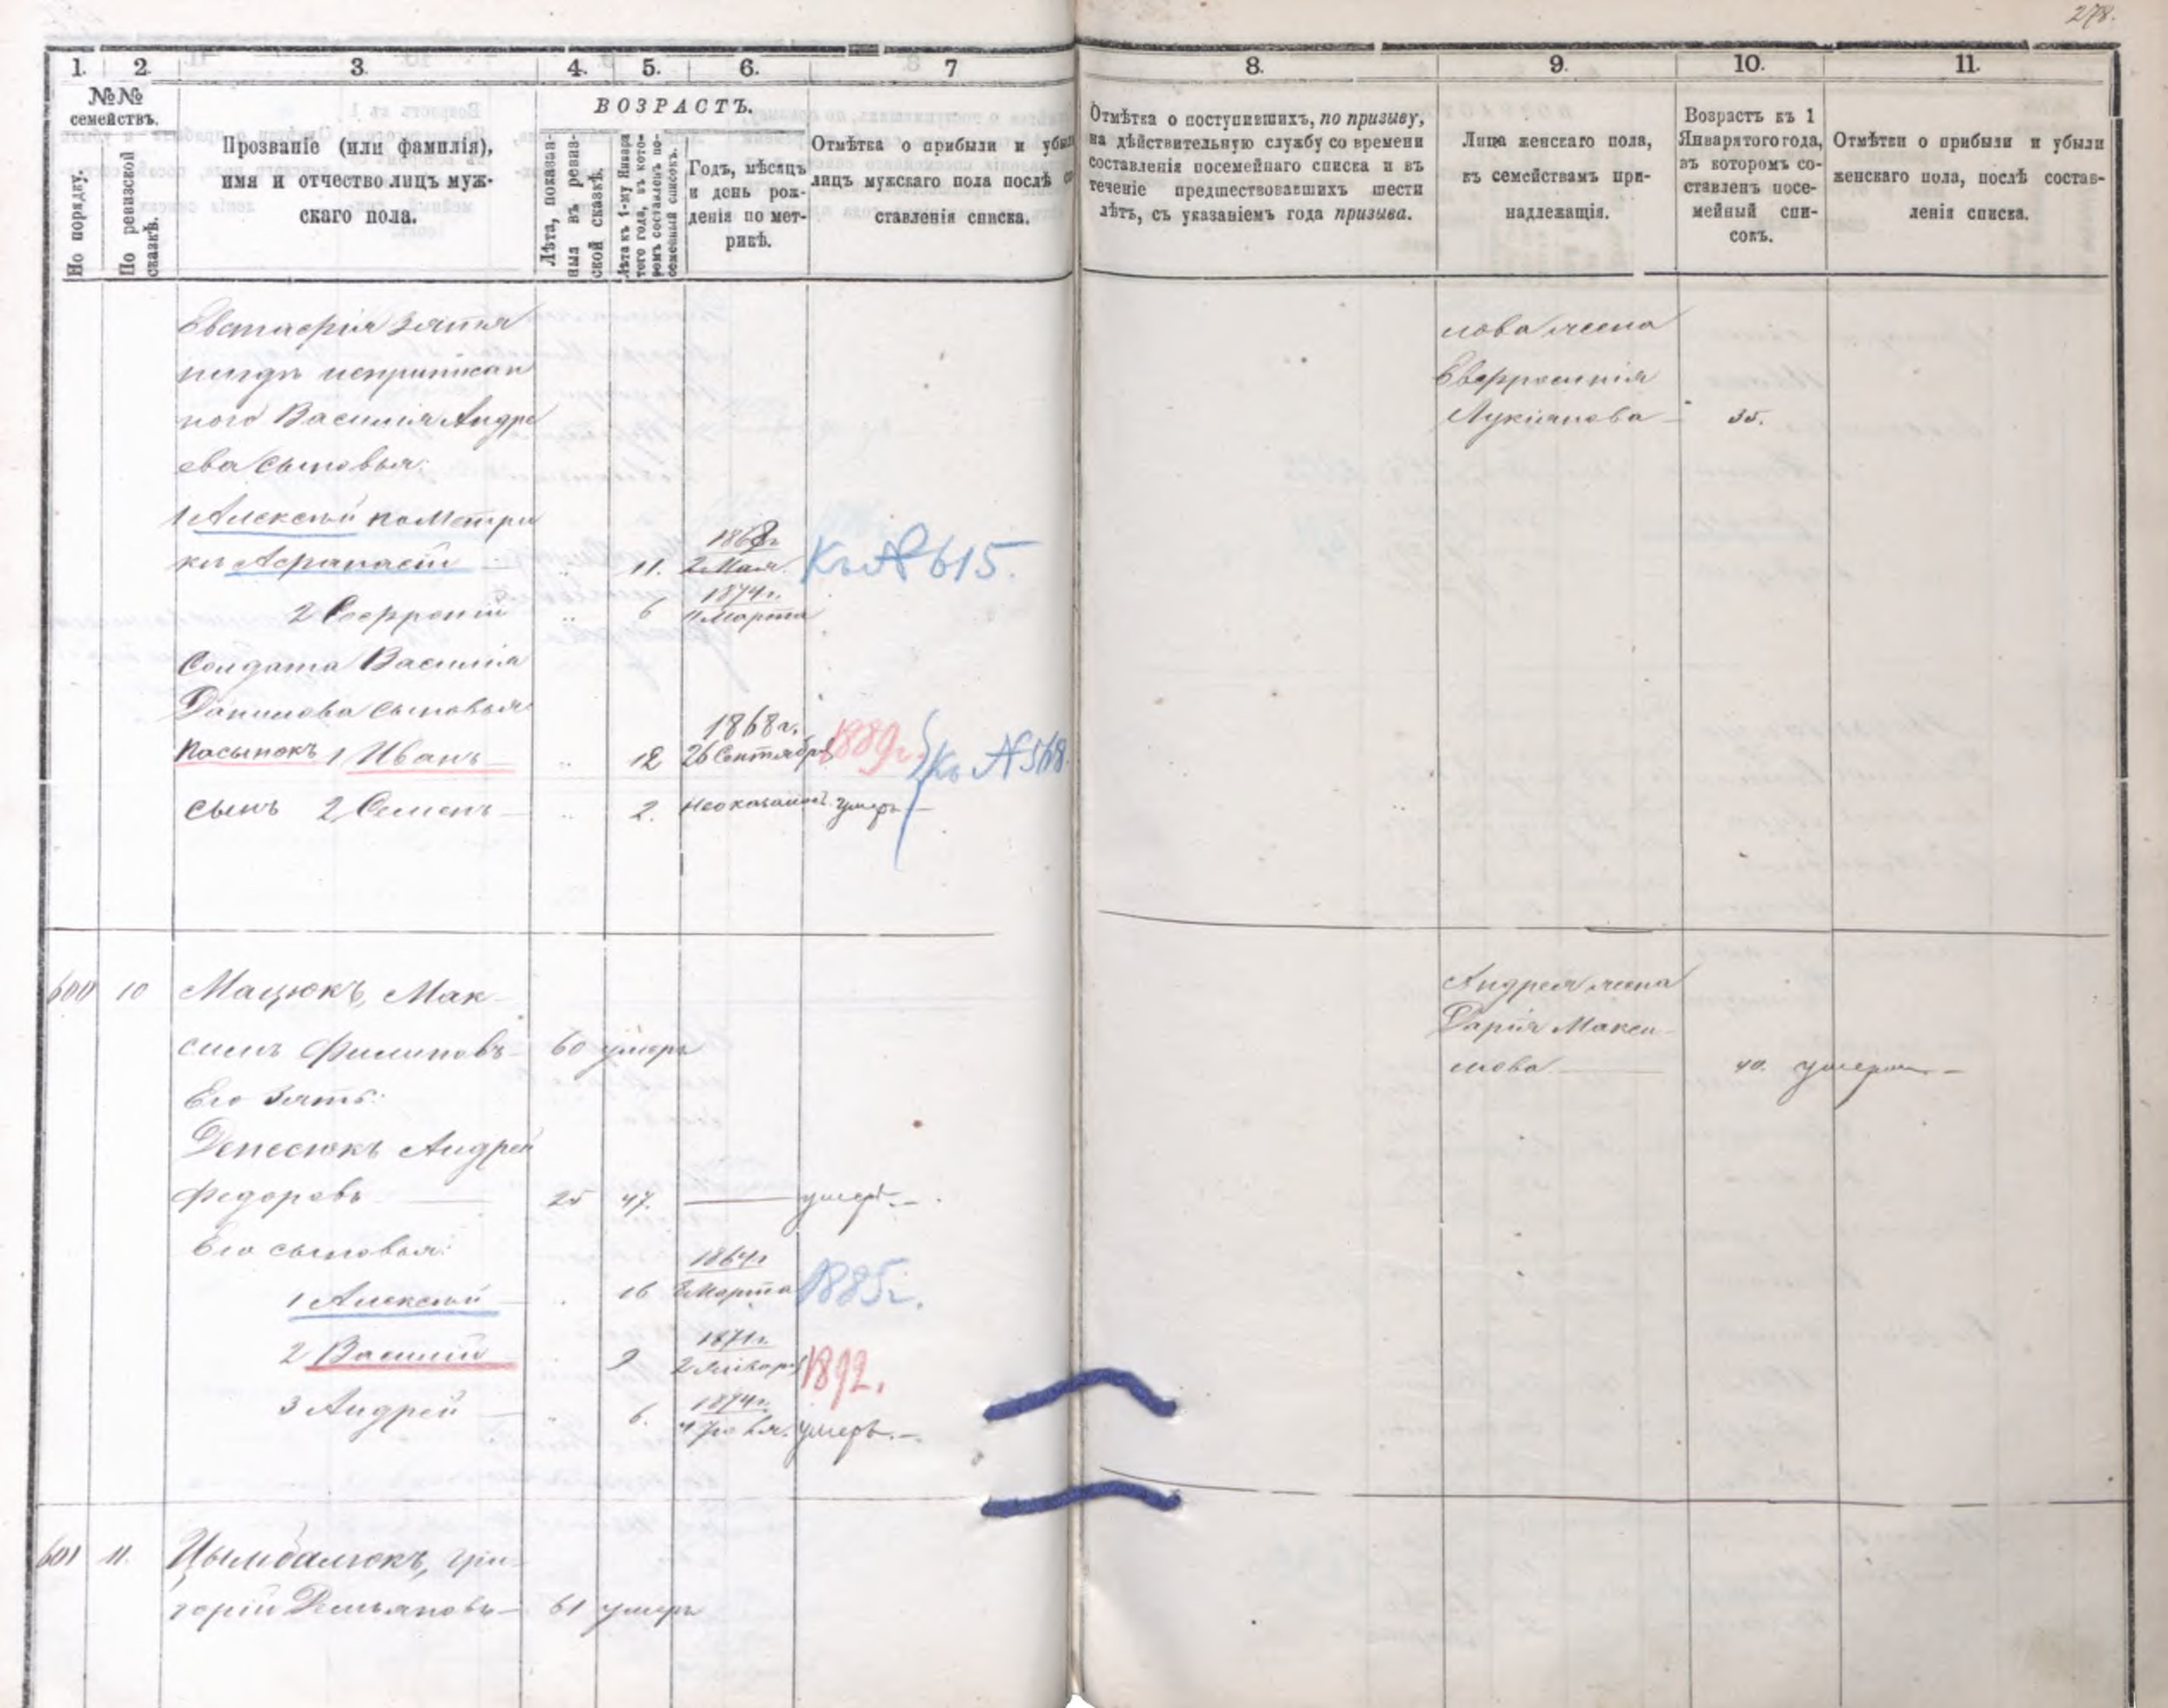 278.
1. 2. 3. 4. 5. 6. 7 8. 9. 10. 11.
№№ семействъ.
По порядку.
По ревизской сказкѣ.
Прозваніе (или фамилія),
имя и отчество лицъ муж-
скаго пола.
ВОЗРАСТЪ.
Лѣта, показан-
ныя въ ревиз-
ской сказкѣ.
Лѣта къ 1-му Января
того года, въ кото-
ромъ составленъ по-
семейный списокъ.
Годъ, мѣсяцъ
и день рож-
денія по мет-
рикѣ.
Отмѣтка о прибыли и убыли
лицъ мужскаго пола послѣ со-
ставленія списка.
Отмѣтка о поступившихъ, по призыву,
на дѣйствительную службу со времени
составленія посемейнаго списка и въ
теченіе предшествовавшихъ шести
лѣтъ, съ указаніемъ года призыва.
Лица женскаго пола,
къ семействамъ при-
надлежащія.
Возрастъ къ 1
Января того года,
въ которомъ со-
ставленъ посе-
мейный спи-
сокъ.
Отмѣтки о прибыли и убыли
женскаго пола, послѣ состав-
ленія списка.
Евстафія зятя
нигдѣ неприписан
ного Василія Андре
ева сыновья:
1 Алексѣй по метри
кѣ Афанасій 11. 1868 г. 2 Мая. Къ № 615.
2 Софроній 6 1874 г. 11 Марта
Солдата Василія
Данилова сыновья
пасынокъ 1 Иванъ 12 1868 г. 26 Сентября 1889 г. Къ № 568.
сынъ 2 Семенъ 2. Неоказалось умеръ
лова жена
Евфросинія
Лукіянова 35.
600 10 Мацюкъ, Мак-
симъ Филиповъ 60 умеръ
Его зять:
Денесюкъ Андрей
Федоровъ 25 47. умеръ.
Его сыновья:
1 Алексѣй 16 1864 г. 2 Марта 1885 г.
2 Василій 9 1871 г. 2 Января 1892.
3 Андрей 6. 1874 г. умеръ.
Андрея жена
Дарія Макси-
мова 40. умерла
601 11. Цымбалюкъ, Гри-
горій Демьяновъ 61 умеръ